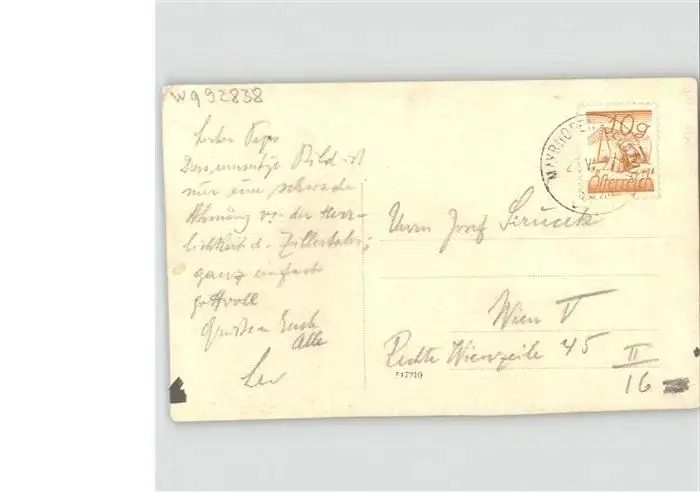 W992838
Lieber Pepo
Dies umseitige Bild ist
nur eine schwache
Ahnung von der Herr-
lichkeit d. Zillertales;
ganz einfach
gottvoll
Grüsse an Euch
Alle
Leo
MAYRHOFEN
10g
Österreich
Herrn Josef
Wien V
Rechte Wienzeile 45
II
16
F17210